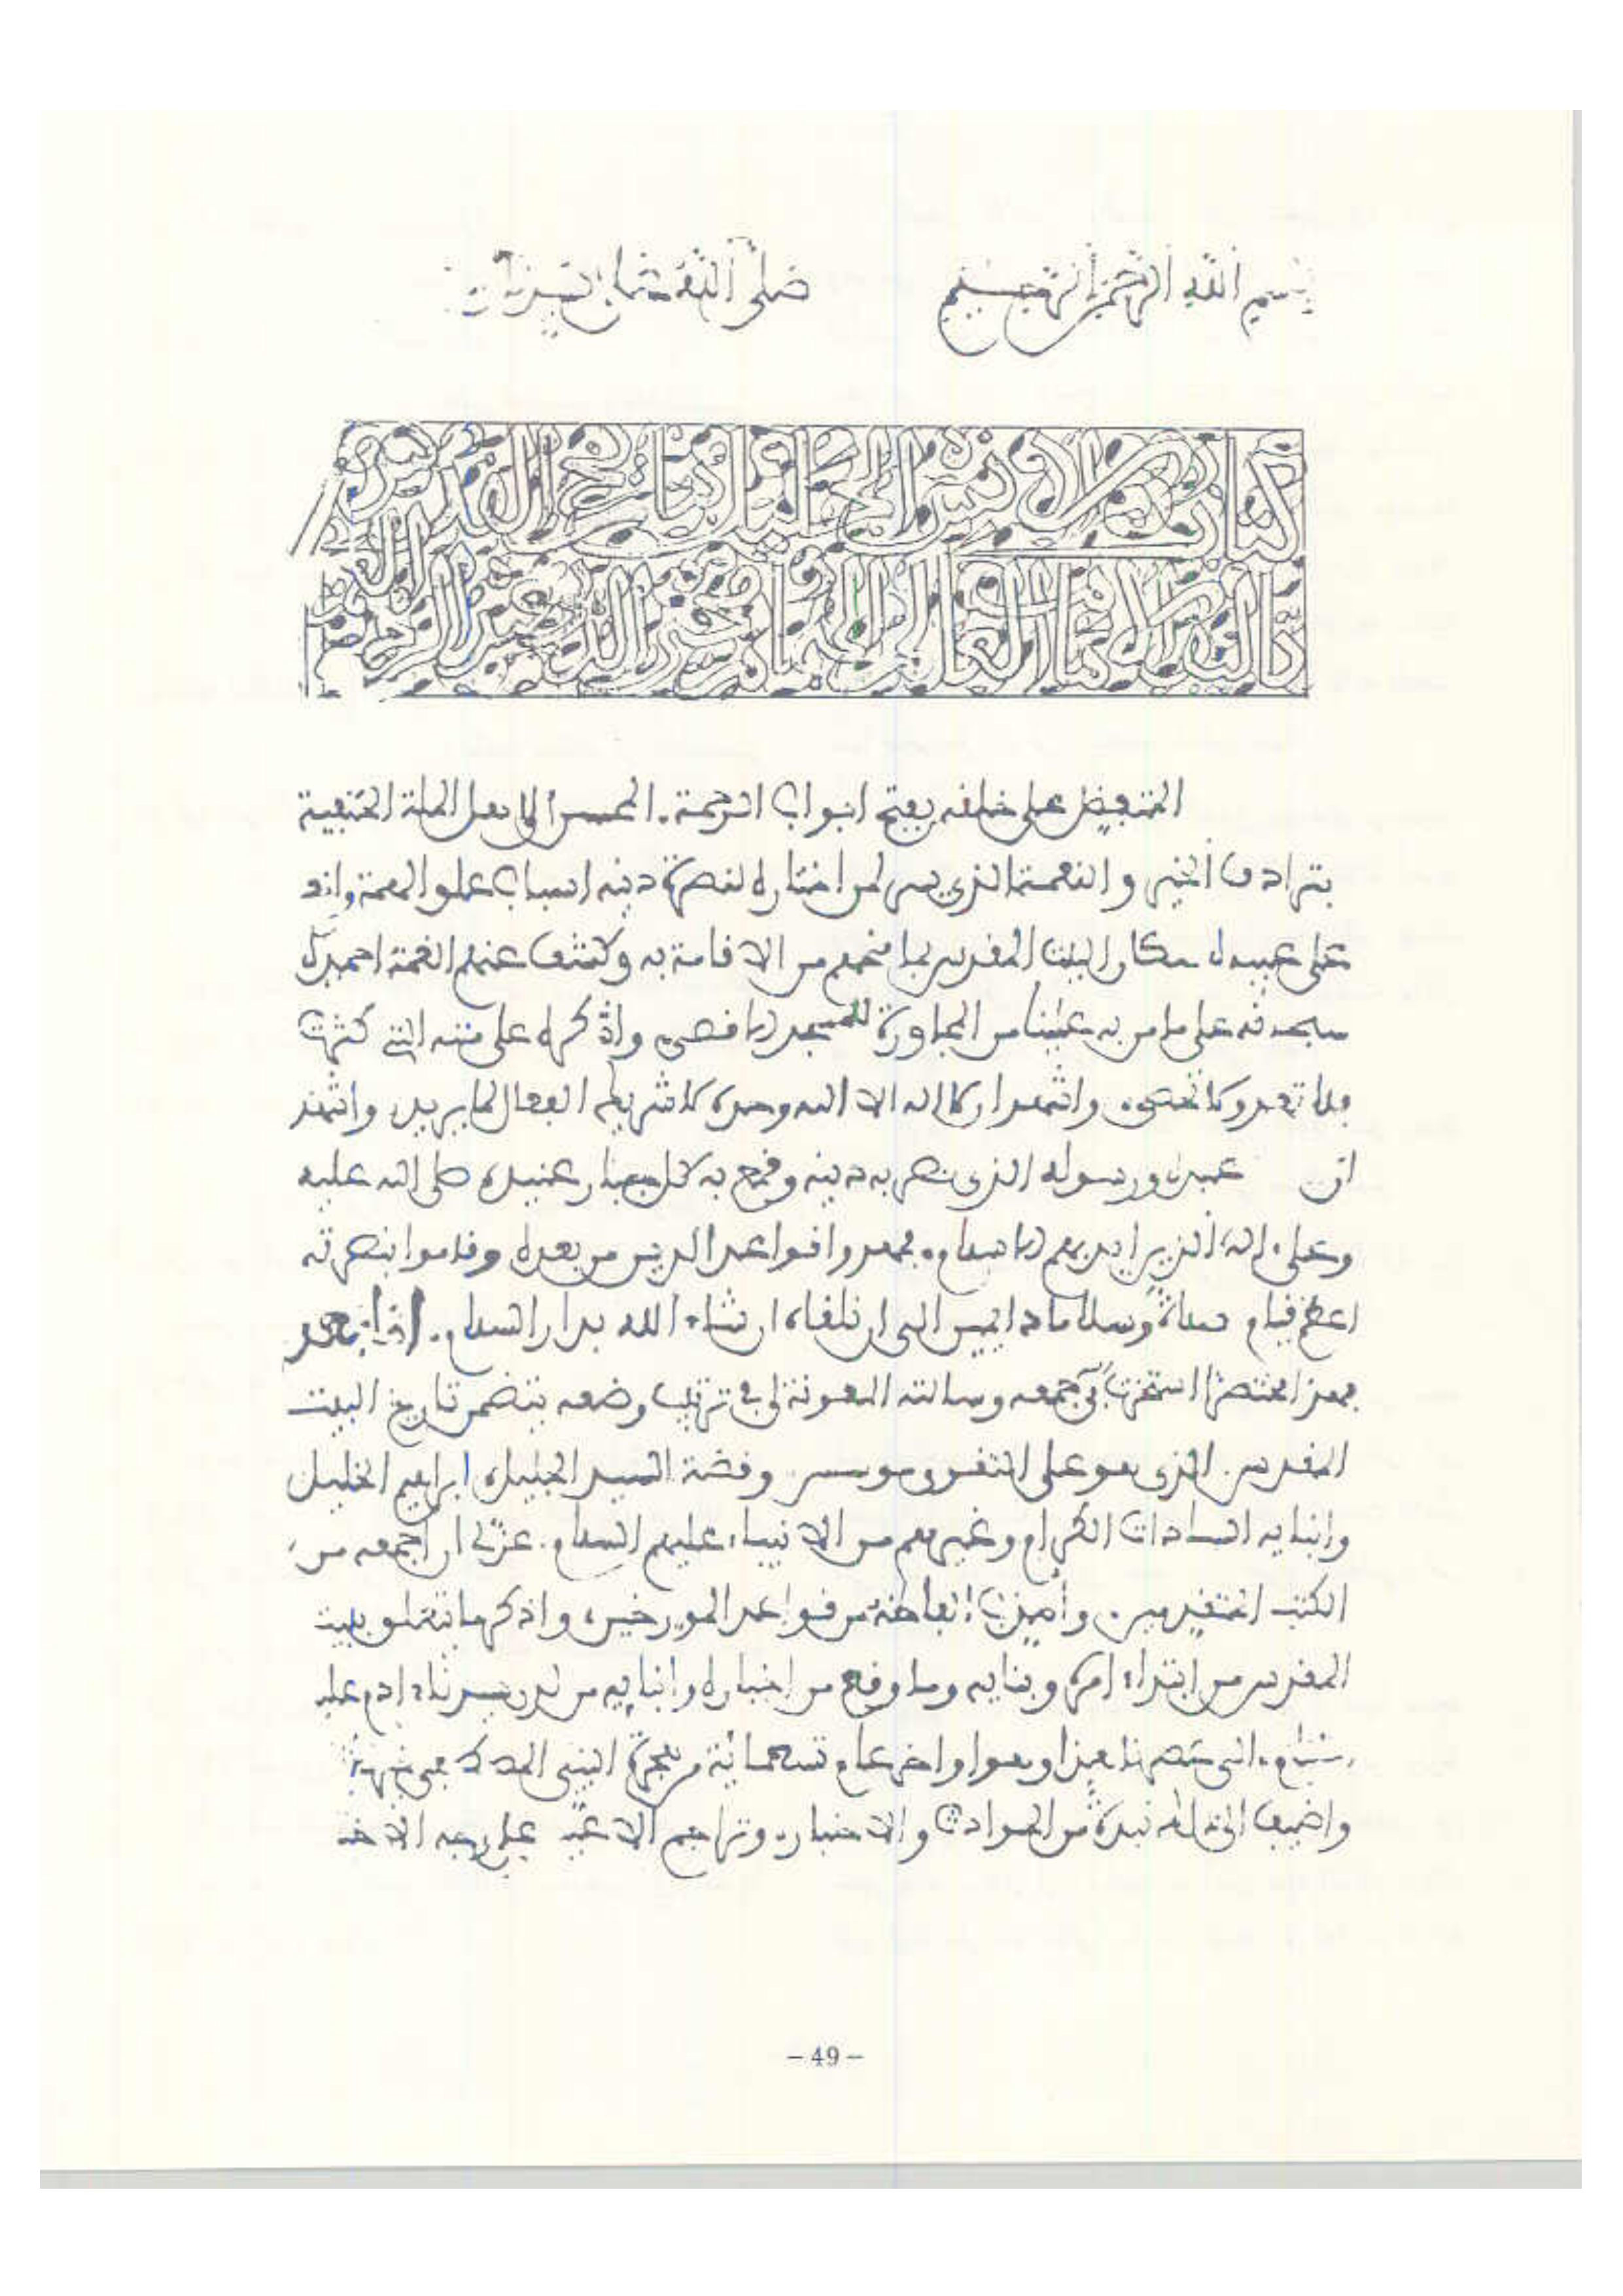 بسم الله الرحمن الرحيم صلى الله على
كتاب الانس الجليل بتاريخ القدس
قال الامام العالم مجير الدين عبد الرحمن
المتفضل على خلقه بفتح ابواب الرحمة. المحسن الى اهل الملة الحنيفية
بترادف الخير والنعمة الذي يسر لمن اختاره لنصرة دينه اسباب علو الهمة
على سكان البيت المقدس بما منحهم من الاقامة به وكشف عنهم الغمة احمده
سبحانه على ما من به علينا من المجاورة للمسجد الاقصى واشكره على مننه التي كثرت
فلا تعد ولا تحصى. واشهد ان لا اله الا الله وحده لا شريك له الفعال لما يريد واشهد
ان عبده ورسوله الذي نصر به دينه وقمع به كل جبار عنيد، صلى الله عليه
وعلى اله الذين ايد بهم الاسلام. فمهدوا قواعد الدين من بعده وقاموا بنصرته
اعظم قيام صلاة وسلاما دائمين الى ان نلقاه ان شاء الله بدار السلام. اما بعد
فهذا مختصر استخرت في جمعه وسالته المعونة لي في ترتيب وضعه يتضمن تاريخ البيت
المقدس. الذي هو على التقوى موسس وقصة السيد الجليل، ابراهيم الخليل
وابنايه السادات الكرام وغيرهم من الانبياء عليهم السلام. عن لي ان اجمعه من
الكتب المتقدمين. الفاظه من فواعد المورخين، واذكر ما تعلق ببيت
المقدس من ابتداء امره وبنايه وما وقع من اخباره وانبايه من لدن سيدنا ادم عليه
السلام. الى عصرنا هذا وهو اواخر عام تسعمائة من هجرة النبي
واضيف الى ذلك نبذة من الحوادث والاخبار، وتراجم على وجه
- 49 -